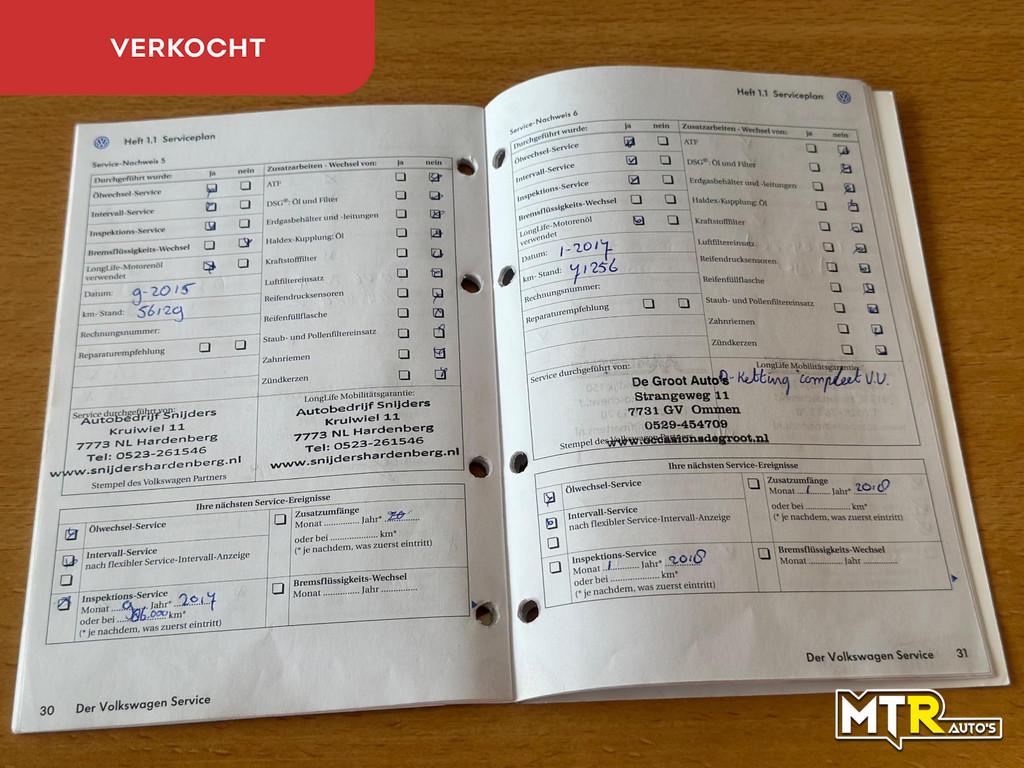 VERKOCHT
Heft 1.1 Serviceplan
Service-Nachweis 5
Durchgeführt wurde: ja nein
Ölwechsel-Service
Intervall-Service
Inspektions-Service
Bremsflüssigkeits-Wechsel
LongLife-Motorenöl
verwendet
Datum: 9-2015
km-Stand: 56129
Rechnungsnummer:
Reparaturempfehlung
Zusatzarbeiten - Wechsel von: ja nein
ATF
DSG®: Öl und Filter
Erdgasbehälter und -leitungen
Haldex-Kupplung: Öl
Kraftstofffilter
Luftfiltereinsatz
Reifendrucksensoren
Reifenfüllflasche
Staub- und Pollenfiltereinsatz
Zahnriemen
Zündkerzen
Service durchgeführt von:
Autobedrijf Snijders
Kruiwiel 11
7773 NL Hardenberg
Tel: 0523-261546
www.snijdershardenberg.nl
Stempel des Volkswagen Partners
LongLife Mobilitätsgarantie:
Autobedrijf Snijders
Kruiwiel 11
7773 NL Hardenberg
Tel: 0523-261546
www.snijdershardenberg.nl
Ihre nächsten Service-Ereignisse
Ölwechsel-Service
Intervall-Service
nach flexibler Service-Intervall-Anzeige
Inspektions-Service
Monat 9 Jahr* 2017
oder bei km*
(* je nachdem, was zuerst eintritt)
Zusatzumfänge
Monat Jahr*
oder bei km*
(* je nachdem, was zuerst eintritt)
Bremsflüssigkeits-Wechsel
Monat Jahr
30 Der Volkswagen Service
Heft 1.1 Serviceplan
Service-Nachweis 6
Durchgeführt wurde: ja nein
Ölwechsel-Service
Intervall-Service
Inspektions-Service
Bremsflüssigkeits-Wechsel
LongLife-Motorenöl
verwendet
Datum: 1-2017
km-Stand: 71256
Rechnungsnummer:
Reparaturempfehlung
Zusatzarbeiten - Wechsel von: ja nein
ATF
DSG®: Öl und Filter
Erdgasbehälter und -leitungen
Haldex-Kupplung: Öl
Kraftstofffilter
Luftfiltereinsatz
Reifendrucksensoren
Reifenfüllflasche
Staub- und Pollenfiltereinsatz
Zahnriemen
Zündkerzen
Service durchgeführt von:
De Groot Auto's
Strangeweg 11
7731 GV Ommen
0529-454709
www.occasionsdegroot.nl
Stempel des
LongLife Mobilitätsgarantie:
D-Ketting compleet V.V.
Ihre nächsten Service-Ereignisse
Ölwechsel-Service
Intervall-Service
nach flexibler Service-Intervall-Anzeige
Inspektions-Service
Monat 1 Jahr* 2018
oder bei km*
(* je nachdem, was zuerst eintritt)
Zusatzumfänge
Monat 1 Jahr* 2018
oder bei km*
(* je nachdem, was zuerst eintritt)
Bremsflüssigkeits-Wechsel
Monat Jahr
Der Volkswagen Service 31
MTR AUTO'S